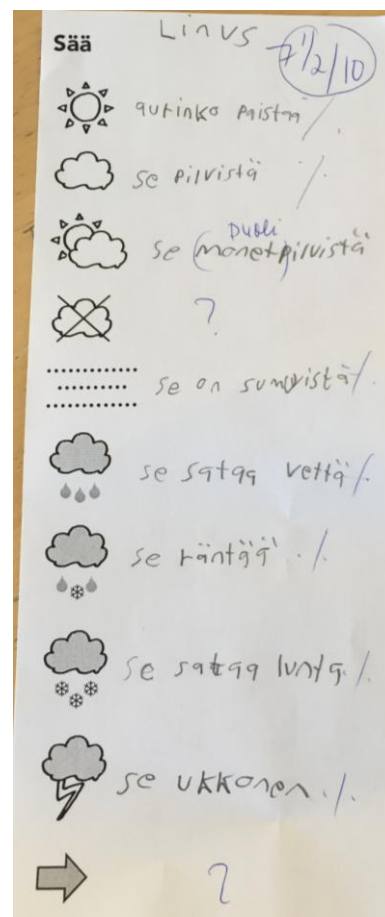 Sää
Linus 7 1/2/10
aurinko paistaa ./.
se pilvistä ./.
puoli
se (monet)pilvistä
?
se on sumvistä ./.
se sataa vettä ./.
se räntää ./.
se sataa lunta ./.
se ukkonen ./.
?